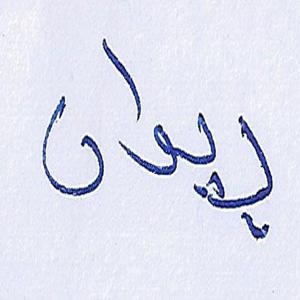 لیوان